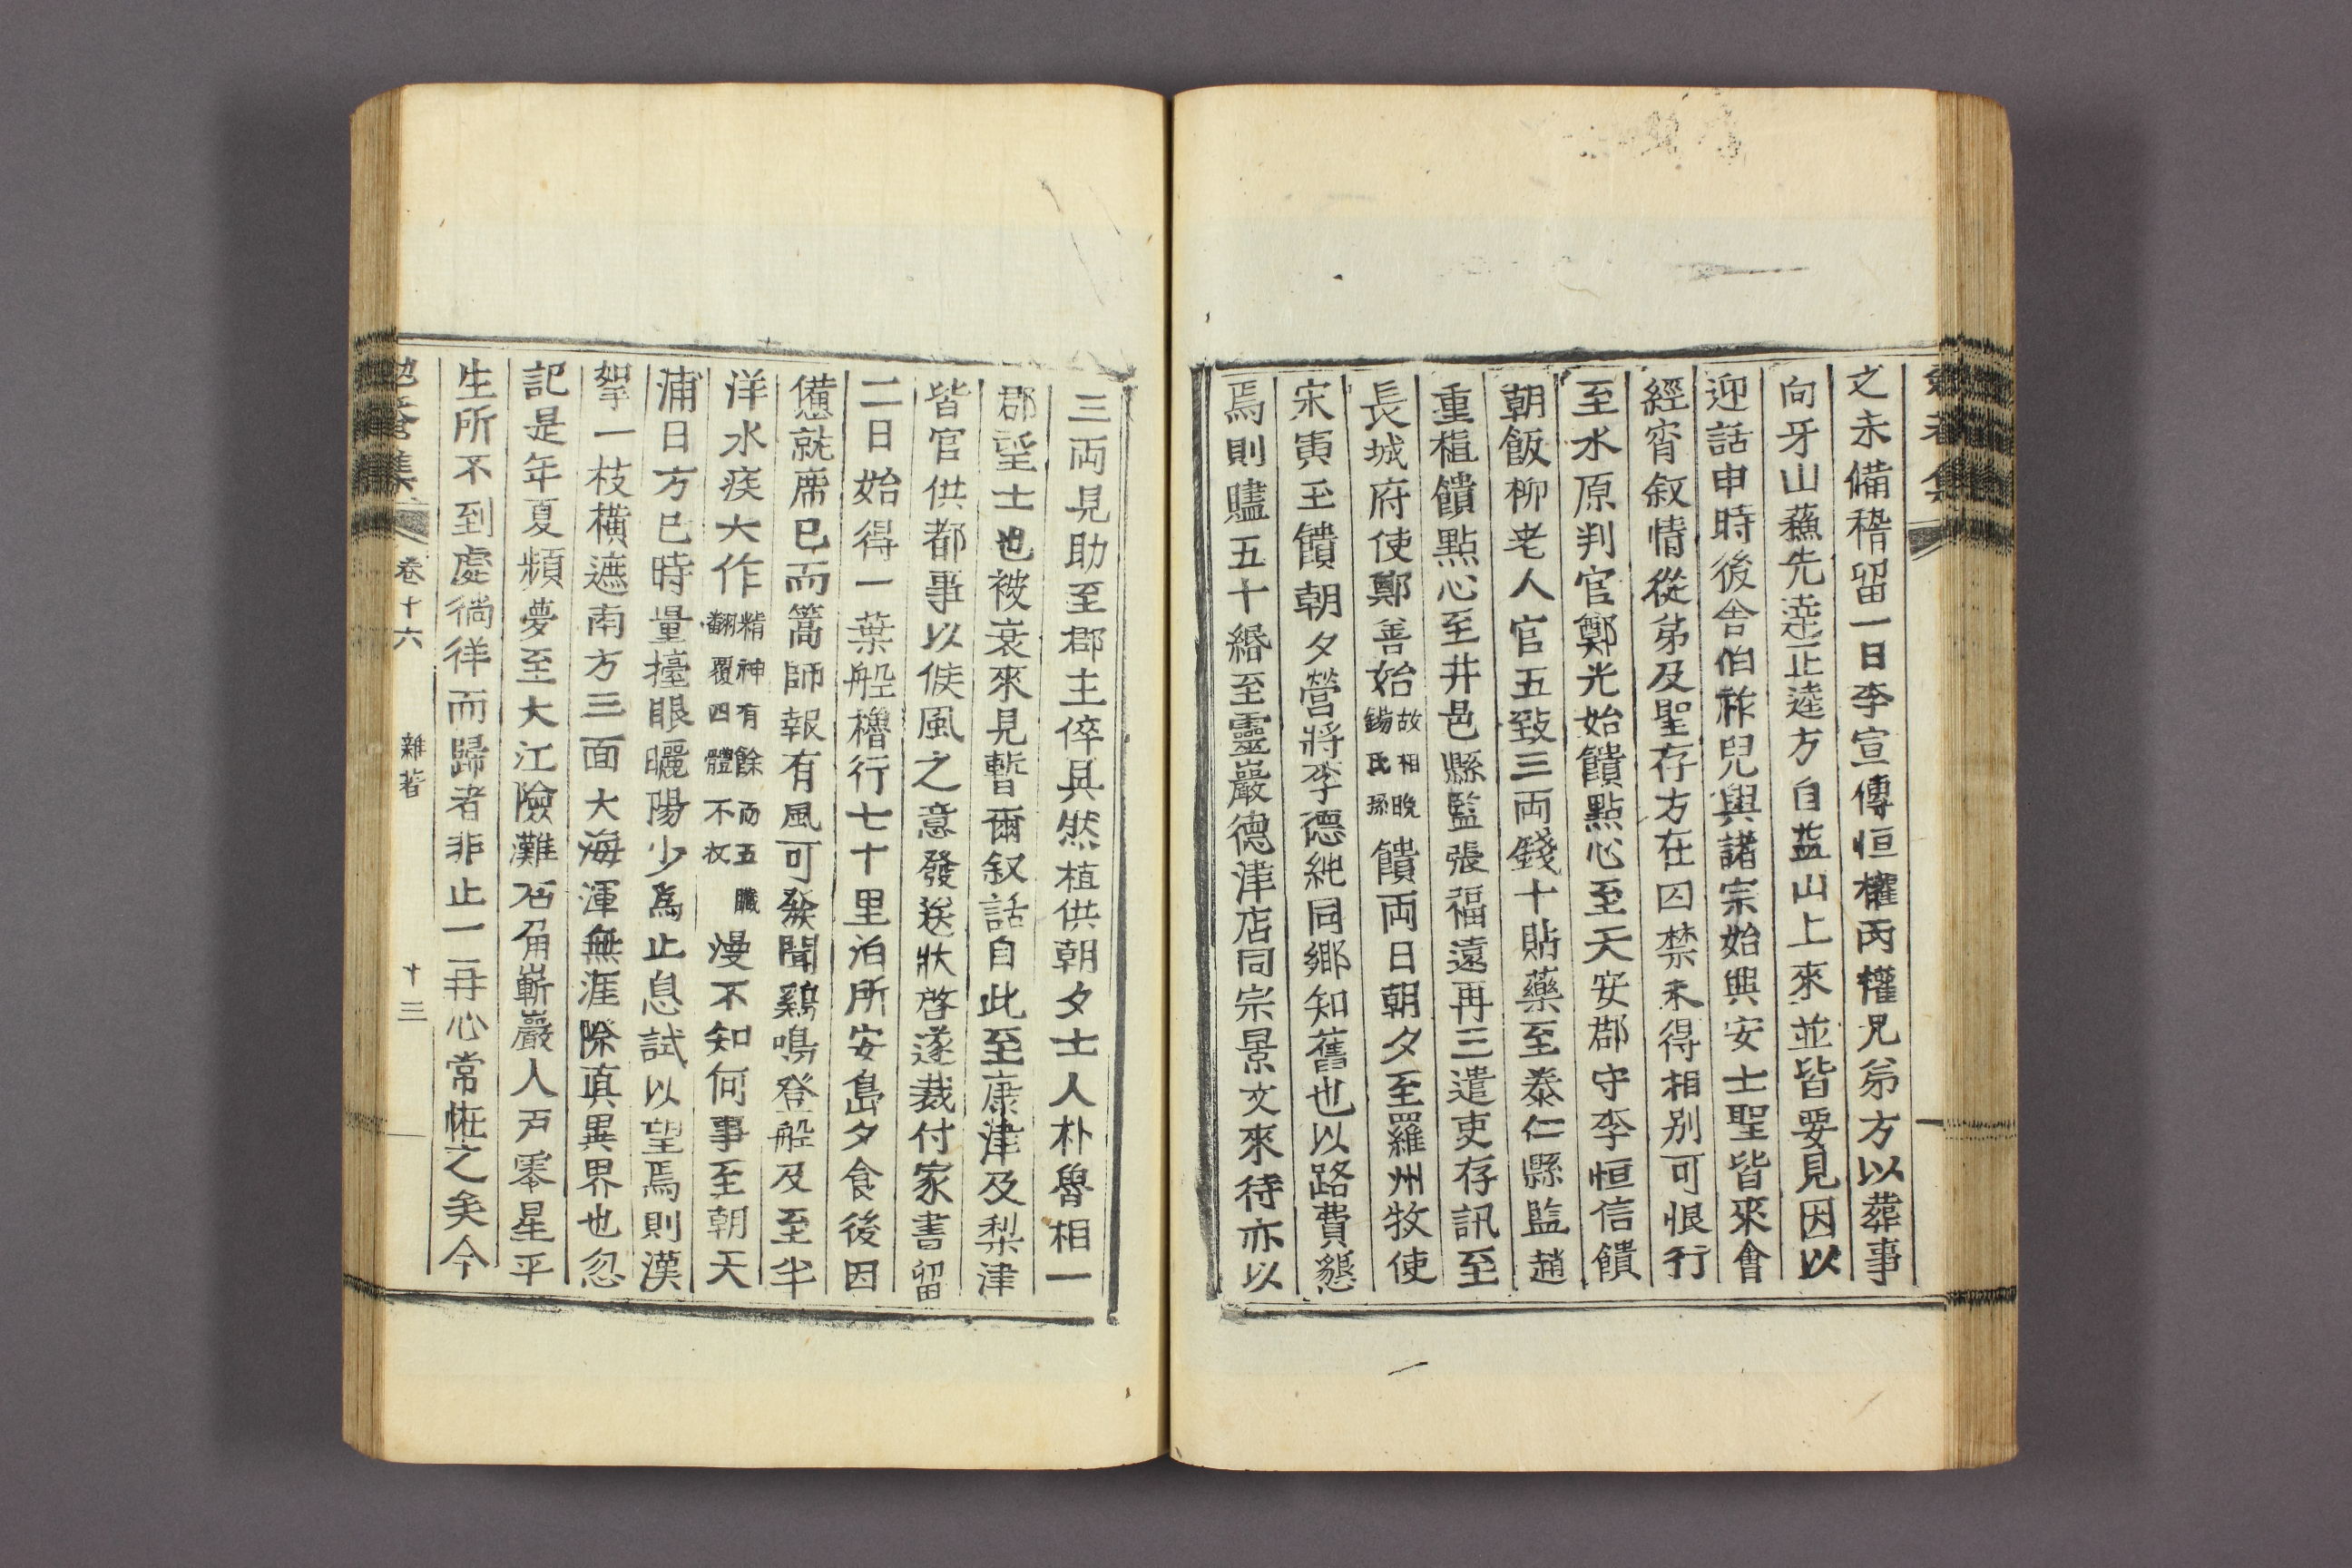 之未備稽留一日李宣傳恒權丙權兄弟方以葬事
向牙山蘓先達正逵方自益山上來並皆要見因以
迎話申時後舍伯祚兒與諸宗始興安士聖皆來會
經宵叙情從弟及聖存方在囚禁未得相別可恨行
至水原判官鄭光始饋點心至天安郡守李恒信饋
朝飯柳老人官五致三両錢十貼藥至泰仁縣監趙
重植饋點心至井邑縣監張福遠再三遣吏存訊至
長城府使鄭善始故相晩錫氏孫饋両日朝夕至羅州牧使
宋寅玉饋朝夕營將李德純同鄉知舊也以路費懇
焉則贐五十緡至靈巖德津店同宗景文來待亦以
三両見助至郡主倅具然植供朝夕士人朴魯相一
郡望士也被衰來見暫爾叙話自此至康津及梨津
皆官供都事以候風之意發送狀啓遂裁付家書留
二日始得一葉船櫓行七十里泊所安島夕食後因
憊就席已而篙師報有風可發聞鷄鳴登船及至半
洋水疾大作精神有餘而五臟翻覆四體不收漫不知何事至朝天
浦日方巳時量擡眼曬陽少爲止息試以望焉則漢
拏一枝橫遮南方三面大海渾無涯際眞異界也忽
記是年夏頻夢至大江險灘石角嶄巖人戸零星平
生所不到處徜徉而歸者非止一二再心常恠之矣今
勉菴集 卷十六 雜著 十三